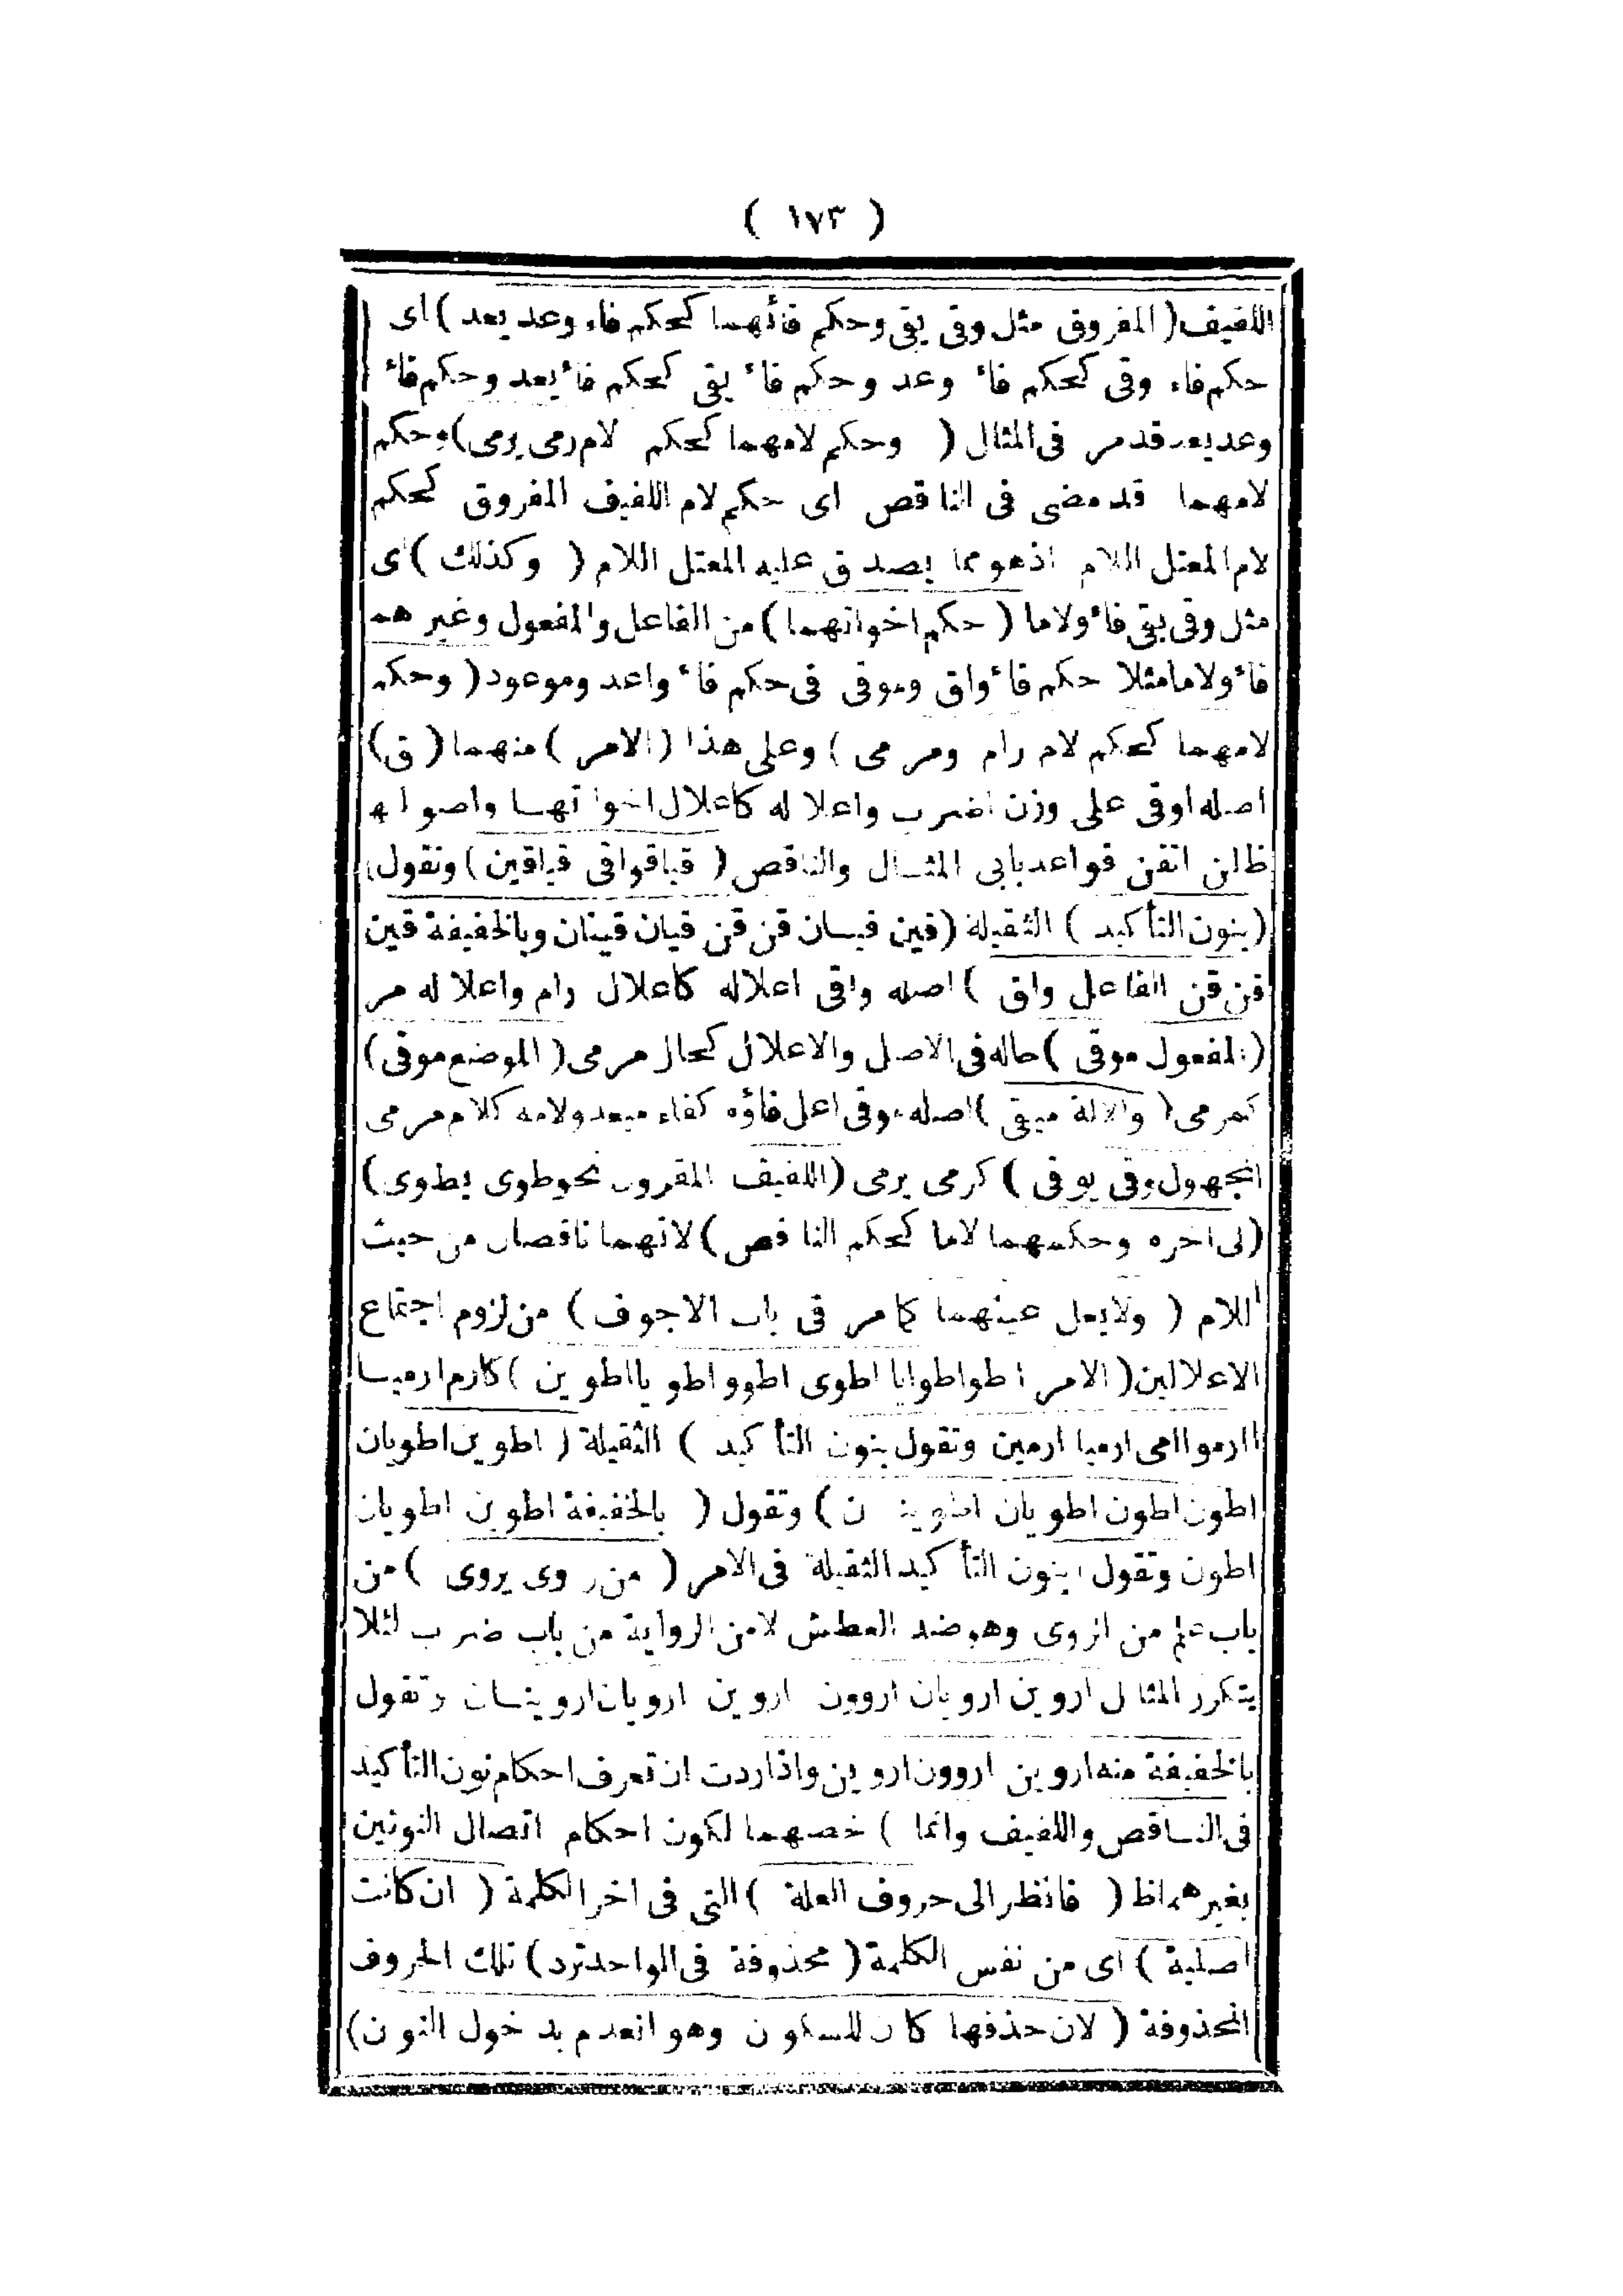 ( ١٧٣ )
اللفيف ( المفروق مثل وقى يقى وحكم فائهما كحكم فاء وعد يعد ) اى
حكم فاء وقى كحكم فاء وعد وحكم فاء يقى كحكم فاء يعد وحكم فاء
وعد يعد قد مر فى المثال ( وحكم لامهما كحكم لام رمى يرمى ) وحكم
لامهما قد مضى فى الناقص اى حكم لام اللفيف المفروق كحكم
لام المعتل اللام اذ هو مما يصدق عليه المعتل اللام ( وكذلك ) اى
مثل وقى يقى فاء ولاما ( حكم اخواتهما ) من الفاعل والمفعول وغير هما
فاء ولاما مثلا حكم فاء واق وموقى فى حكم فاء واعد وموعود ( وحكم
لامهما كحكم لام رام ومرمى ) وعلى هذا ( الامر ) منهما ( ق )
اصله اوقى على وزن اضرب واعلاله كاعلال اخواتهما واصولها
ظ لمن اتقن قواعد بابى المثال والناقص ( قيا قوا قى قيا قين ) وتقول
( بنون التأكيد ) الثقيلة ( قين قيان قن قن قيان قينان وبالخفيفة قين
قن قن الفاعل واق ) اصله واقى اعلاله كاعلال رام واعلاله مر
( المفعول موقى ) حاله فى الاصل والاعلال كحال مرمى ( الموضع موقى )
كمرمى ( والالة ميقى ) اصله موقى اعل فاؤه كفاء ميعد ولامه كلام مرمى
المجهول وقى يوقى ) كرمى يرمى ( اللفيف المقرون نحو طوى يطوى )
( لى اخره وحكمهما لاما كحكم الناقص ) لانهما ناقصان من حيث
اللام ( ولا يعل عينهما كما مر فى باب الاجوف ) من لزوم اجتماع
الاعلالين ( الامر اطو اطوايا اطوى اطوو اطويا اطوين ) كارم ارميا
ارموا امى ارميا ارمين وتقول بنون التأكيد ) الثقيلة ( اطوين اطويان
اطون اطون اطويان اطوينان ) وتقول ( بالخفيفة اطوين اطويان
اطون وتقول بنون التأكيد الثقيلة فى الامر ( من روى يروى ) من
باب علم من الروى وهو ضد العطش لا من الرواية من باب ضرب لئلا
يتكرر المثال اروين ارويان اروون اروين ارويان اروينان وتقول
بالخفيفة منه اروين اروون اروين واذا اردت ان تعرف احكام نون التأكيد
فى الناقص واللفيف وانما ) خصهما لكون احكام اتصال النونين
بغير هما ظ ( فانظر الى حروف العلة ) التى فى اخر الكلمة ( ان كانت
اصلية ) اى من نفس الكلمة ( محذوفة فى الواحد ترد ) تلك الحروف
المحذوفة ( لان حذفها كان للسكون وهو انعدم بدخول النون )